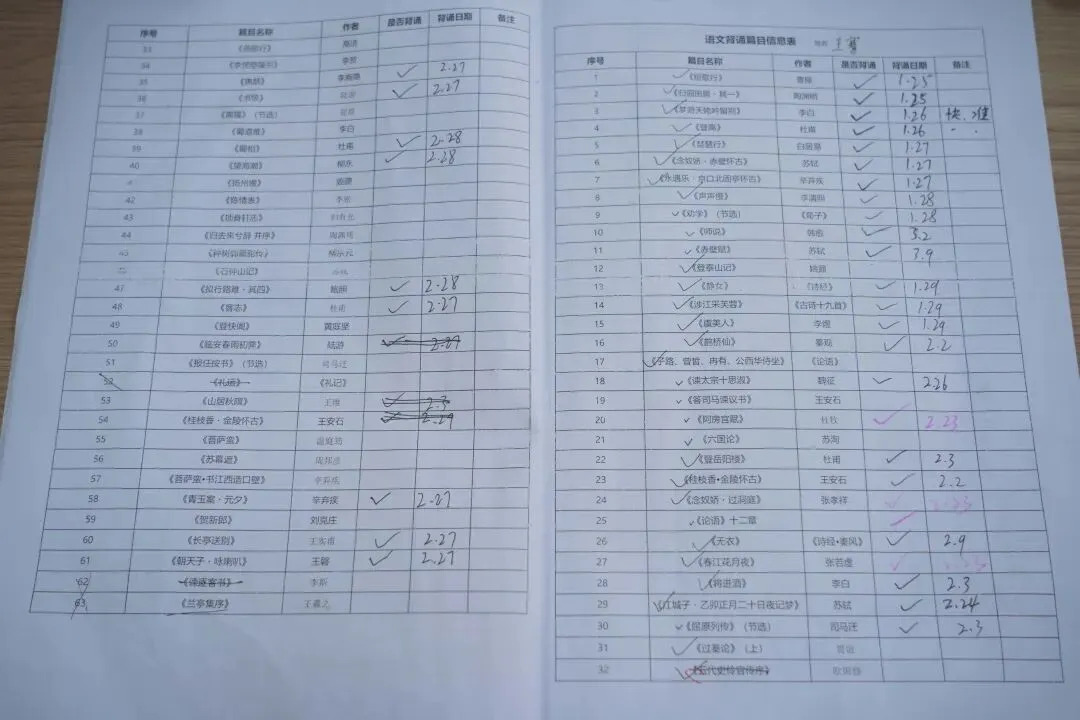 序号 篇目名称 作者 是否背诵 背诵日期 备注
33 《燕歌行》 高适
34 《李凭箜篌引》 李贺
35 《锦瑟》 李商隐 ✓ 2.27
36 《书愤》 陆游 ✓ 2.27
37 《离骚》（节选） 屈原
38 《蜀道难》 李白
39 《蜀相》 杜甫 ✓ 2.28
40 《望海潮》 柳永 ✓ 2.28
《扬州慢》 姜夔
42 《陈情表》 李密
43 《项脊轩志》 归有光
44 《归去来兮辞 并序》 陶渊明
45 《种树郭橐驼传》 柳宗元
46 《石钟山记》 苏轼
47 《拟行路难·其四》 鲍照 ✓ 2.28
48 《客至》 杜甫 ✓ 2.27
49 《登快阁》 黄庭坚
50 《临安春雨初霁》 陆游 ✓ 2.27
51 《报任安书》（节选） 司马迁
52 《礼运》 《礼记》
53 《山居秋暝》 王维 ✓ 2.3
54 《桂枝香·金陵怀古》 王安石 ✓ 2.29
55 《菩萨蛮》 温庭筠
56 《苏幕遮》 周邦彦
57 《菩萨蛮•书江西造口壁》 辛弃疾
58 《青玉案·元夕》 辛弃疾 ✓ 2.27
59 《贺新郎》 刘克庄
60 《长亭送别》 王实甫 ✓ 2.27
61 《朝天子·咏喇叭》 王磐 ✓ 2.27
62 《谏逐客书》 李斯
63 《兰亭集序》 王羲之
语文背诵篇目信息表 姓名
序号 篇目名称 作者 是否背诵 背诵日期 备注
1 ✓《短歌行》 曹操 ✓ 1.25
2 ✓《归园田居·其一》 陶渊明 ✓ 1.25
3 ✓《梦游天姥吟留别》 李白 ✓ 1.26 快、准
4 ✓《登高》 杜甫 ✓ 1.26
5 ✓《琵琶行》 白居易 ✓ 1.27
6 ✓《念奴娇·赤壁怀古》 苏轼 ✓ 1.27
7 ✓《永遇乐·京口北固亭怀古》 辛弃疾 ✓ 1.27
8 ✓《声声慢》 李清照 ✓ 1.28
9 ✓《劝学》（节选） 《荀子》 ✓ 1.28
10 ✓《师说》 韩愈 ✓ 3.2
11 ✓《赤壁赋》 苏轼 ✓ 3.9
12 ✓《登泰山记》 姚鼐
13 ✓《静女》 《诗经》 ✓ 1.29
14 ✓《涉江采芙蓉》 《古诗十九首》 ✓ 1.29
15 ✓《虞美人》 李煜 ✓ 1.29
16 ✓《鹊桥仙》 秦观 ✓ 2.2
17 ✓《子路、曾皙、冉有、公西华侍坐》 《论语》
18 ✓《谏太宗十思疏》 魏征 ✓ 2.26
19 ✓《答司马谏议书》 王安石
20 ✓《阿房宫赋》 杜牧 ✓ 2.23
21 ✓《六国论》 苏洵
22 ✓《登岳阳楼》 杜甫 ✓ 2.3
23 ✓《桂枝香•金陵怀古》 王安石 ✓ 2.2
24 ✓《念奴娇·过洞庭》 张孝祥 ✓ 2.23
25 ✓《论语》十二章 ✓
26 ✓《无衣》 《诗经•秦风》 ✓ 2.9
27 ✓《春江花月夜》 张若虚 ✓
28 ✓《将进酒》 李白 ✓ 2.3
29 ✓《江城子·乙卯正月二十日夜记梦》 苏轼 ✓ 2.24
30 ✓《屈原列传》（节选） 司马迁 ✓ 2.3
31 ✓《过秦论》（上） 贾谊
32 《五代史伶官传序》 欧阳修